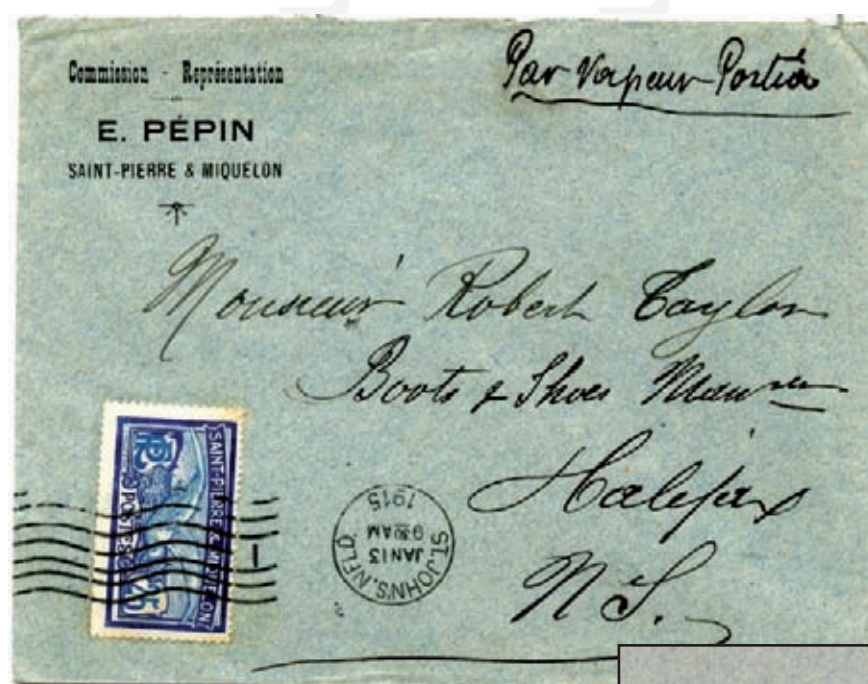 Commission - Représentation
E. PÉPIN
SAINT-PIERRE & MIQUELON
Par Vapeur Portia
Monsieur Robert Taylor
Boots & Shoes
Halifax
N.S.
SAINT-PIERRE & MIQUELON
RF
POSTES
25
ST. JOHN'S. NFLD
JAN 13
9 30 AM
1915